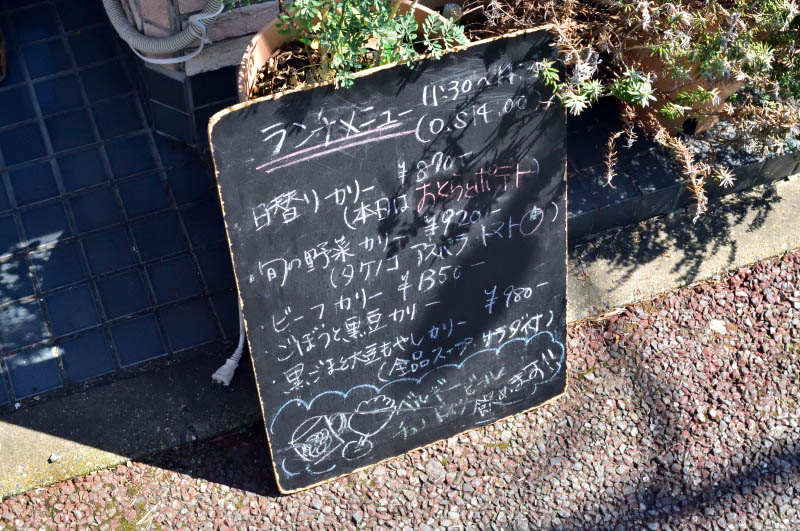 ランチメニュー 11:30〜
(O.S 14:00
日替りカリー ¥870-
(本日は おくらとポテト)
・旬の野菜カリー ¥920-
(タケノコ アスパラ トマト
・ビーフカリー ¥1350-
・ごぼうと黒豆カリー
・黒ごまと大豆もやしカリー ¥980-
(全品スープ サラダ付)
ベルギービール
飲めます!!